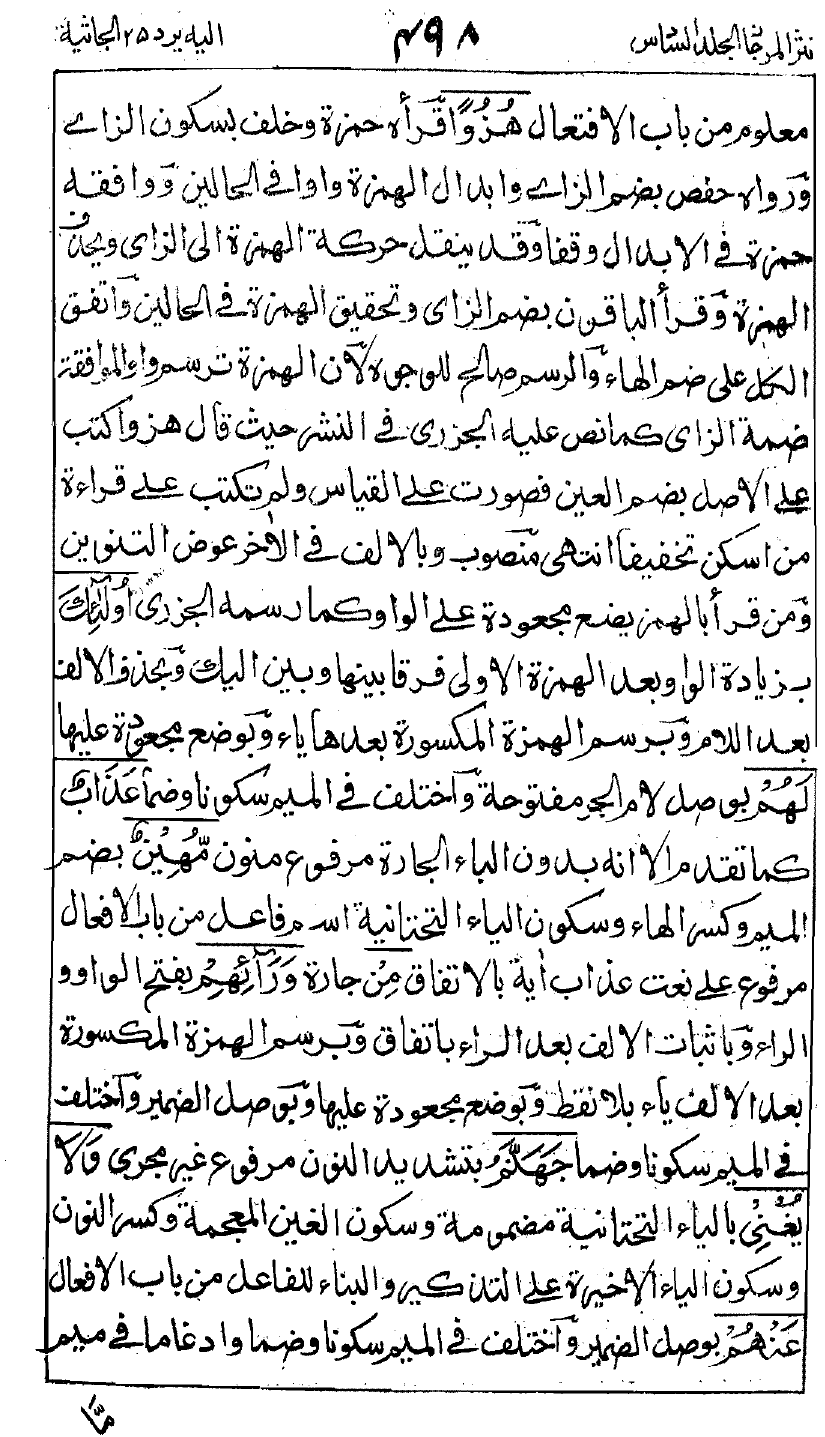 نثر المرجان المجلد السادس ٤٩٨ اليه يرد ٢٥ الجاثية
معلوم من باب الافتعال هُزُوًا قرأه حمزة وخلف بسكون الزاے
ورواه حفص بضم الزاے وابدال الهمزة واوا فے الحالين ووافقه
حمزة فے الابدال وقفا وقد ينقل حركة الهمزة الى الزاى ويحذف
الهمزة وقرأ الباقون بضم الزاى وتحقيق الهمزة فے الحالين واتفق
الكل على ضم الهاء والرسم صالح للوجوه لان الهمزة ترسم واوا لموافقة
ضمة الزاى كما نص عليه الجزرى فے النشر حيث قال هزوا كتب
علے الاصل بضم العين فصورت علے القياس ولم تكتب علے قراءة
من اسكن تخفيفا انتهى منصوب وبالالف فے الاخر عوض التنوين
ومن قرأ بالهمز يضع مجعودة علے الواو كما رسمه الجزرى أُولَٰئِكَ
بزيادة الواو بعد الهمزة الاولى فرقا بينها وبين اليك وبحذف الالف
بعد اللام وبرسم الهمزة المكسورة بعدها ياء وبوضع مجعودة عليها
لَهُمْ بوصل لام الجر مفتوحة واختلف فے الميم سكونا وضما عَذَابٌ
كما تقدم الا انه بدون الباء الجارة مرفوع منون مُّهِينٌ بضم
الميم وكسر الهاء وسكون الياء التحتانية اسم فاعل من باب الافعال
مرفوع علے نعت عذاب أية بالاتفاق مِنْ جارة وَرَائِهِمْ بفتح الواو و
الراء وباثبات الالف بعد الراء باتفاق وبرسم الهمزة المكسورة
بعد الالف ياء بلا نقط وبوضع مجعودة عليها وبوصل الضمير واختلف
فے الميم سكونا وضما جَهَنَّمُ بتشديد النون مرفوع غير مجرى وَلَا
يُغْنِيْ بالياء التحتانية مضمومة وسكون الغين المعجمة وكسر النون
وسكون الياء الاخيرة علے التذكير والبناء للفاعل من باب الافعال
عَنْهُمْ بوصل الضمير واختلف فے الميم سكونا وضما وادغاما فے ميم